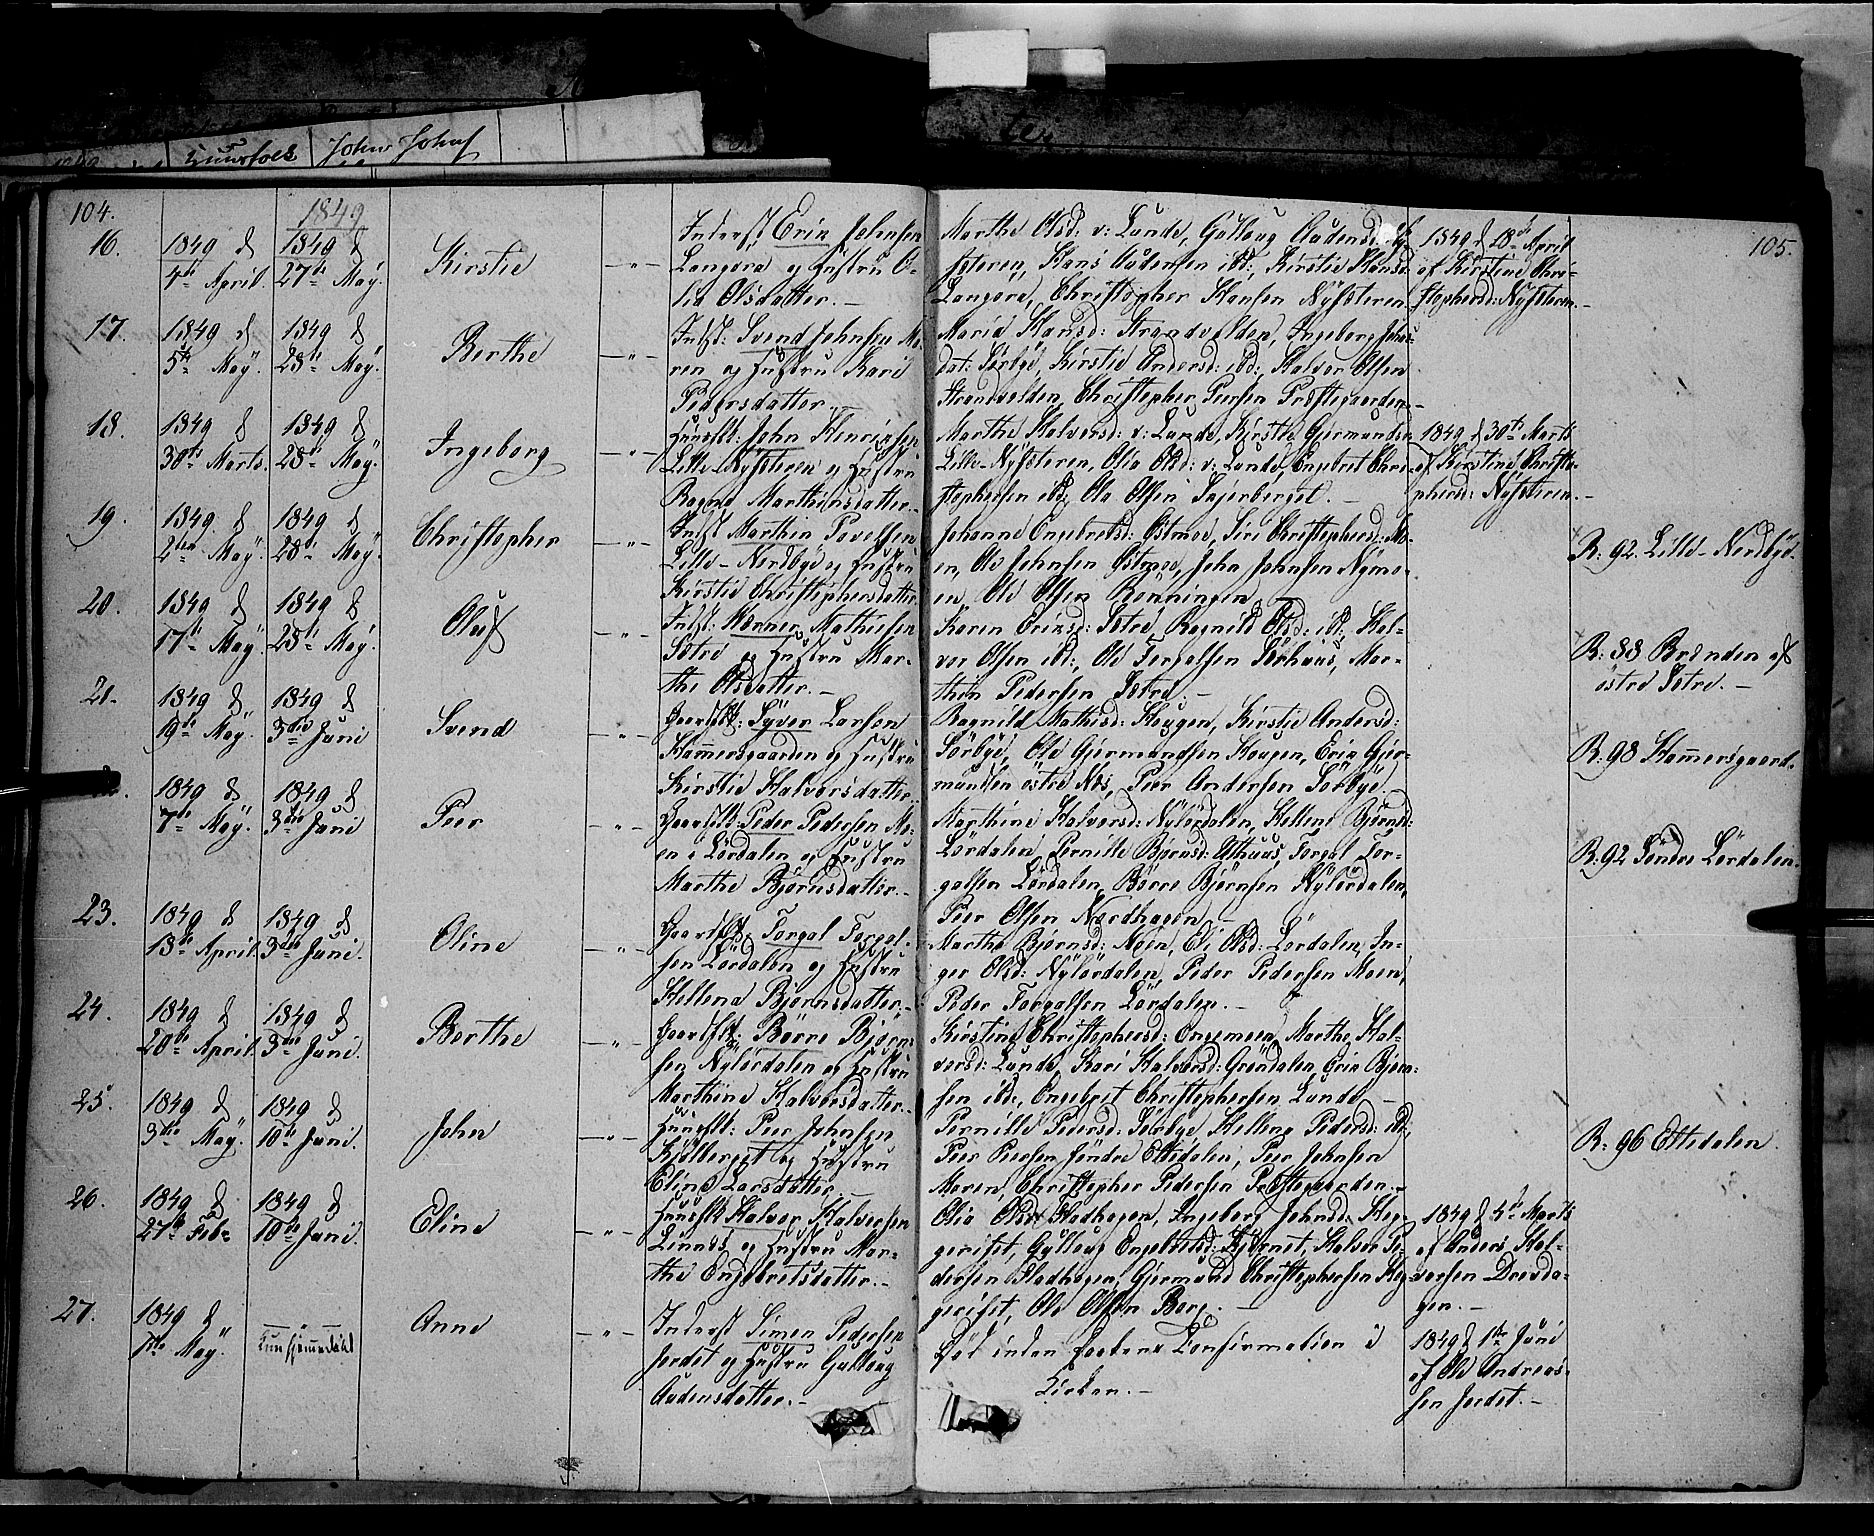 Huusfolk John Johns
104.
1849
105.
16.
1849 d
4de April.
1849 d
27de Maÿ.
Kirstie
— „ —
Inderst Erik Johnsen
Langøra og Hustru O-
lia Olsdatter. —
Marthe Olsd: v: Lunde, Gulloug Audensd:
Hans Audensen ibd:, Kirstie Hansd:
Langøra, Christopher Hansen Nÿsæteren
1849 d 18de April
af Kirstine Chri-
stophersd: Nÿsæteren
17.
1849 d
5te Maÿ.
1849 d
28de Maÿ.
Berthe
— „ —
Indst: Svend Johnsen Mo-
ren og Hustru Kari
Pedersdatter
Marie Hansd: Strandvolden, Ingeborg Johns-
dat: Sørbÿe, Kirstie Andersd: ibd:, Halvor Olsen
Strandvolden, Christopher Persen Præstegaarden.
18.
1849 d
30te Marts.
1849 d
28de Maÿ.
Ingeborg
— „ —
Huusflk: John Henriksen
Lille-Nÿsæteren og Hustru
Ragne Marthinsdatter.
Marthe Halvorsd: v: Lunde, Kirstie Gjermundsd:
Lille-Nÿsæteren, Olia Olsd: v: Lunde, Engebret Chri-
stophersen ibd: Ole Olsen Sajerberget. —
1849 d 30te Marts
af Kirstine Christo-
phersd: Nÿsæteren. —
19.
1849 d
2den Maÿ.
1849 d
28de Maÿ.
Christopher
— „ —
Indst Marthin Povelsen
Lille-Nordbÿe og Hustru
Kirstie Christophersdatter
Johanne Engebretsd: Østmoe, Siri Christophersd: Mo-
en, Ole Johnsen Østmoe, John Johnsen Nÿmo-
en Ole Olsen Rønningen
R: 92. Lille-Nordbÿe.
20.
1849 d
17de Maÿ.
1849 d
28de Maÿ.
Oluf
— „ —
Indst: Werner Mathisen
Sætre og Hustru Mar-
the Olsdatter. —
Karen Eriksd: Sætre, Ragnild Olsd: ibd:, Hal-
vor Olsen ibd:, Ole Torgalsen Sørhuus, Mar-
thin Pedersen Sætre. —
R: 88 Brænden af
østre Sætre. —
21.
1849 d
19de Maÿ.
1849 d
3die Juni
Svend
— „ —
Gaardflk: Sÿver Larsen
Hammersgaarden og Hustru
Kirstie Halvorsdatter.
Ragnild Mathisd: Haugen, Kirstie Andersd:
Sørbÿe, Ole Gjermundsen Haugen, Erik Gjer-
mundsen østre Næs, Peer Andersen Sørbÿe.
R: 98 Hamersgaard.
1849 d
7de Maÿ.
1849 d
3die Juni
Peer
— „ —
Gaardflk: Peder Pedersen Mo-
en i Lørdalen og Hustru
Marthe Bjørnsdatter. —
Marthine Halvorsd: Nÿlørdalen, Hellene Bjørnsd:
Lørdalen, Pernille Bjørnsd: Uthuus, Torgal Tor-
galsen Lørdalen, Børre Bjørnsen Nÿlørdalen,
Peer Olsen Nordhagen
R: 92 Søndre Lørdalen.
23.
1849 d
13de April.
1849 d
3die Juni.
Oline
— „ —
Gaardflk: Torgal Torgal-
sen Lørdalen og Hustru
Hellena Bjørnsdatter. —
Marthe Bjørnsd: Moen, Eli Olsd: Lørdalen, In-
ger Olsd: Nÿlørdalen, Peder Pedersen Moen,
Peder Torgalsen Lørdalen. —
24.
1849 d
20de April.
1849 d
3die Juni.
Berthe
— „ —
Gaardflk: Børre Bjørn-
sen Nÿlørdalen og Hustru
Marthine Halvorsdatter.
Kirstine Christophersd: Engemoen, Marthe Hal-
vorsd: Lunde, Kari Halvorsd: Grøndalen, Erik Bjørn-
sen ibd:, Engebret Christophersen Lunde —
25.
1849 d
3die Maÿ.
1849 d
10de Juni.
John
— „ —
Huusflk: Peer Johnsen
Kjølberget og Hustru
Eline Larsdatter.
Pernille Pedersd: Sørbÿe, Hellene Pedersd: ibd:,
Peer Peersen søndre Ettedalen, Peer Johnsen
Moren, Christopher Pedersen Præstegaarden. —
R: 96 Ettedalen
26.
1849 d
27de Febr
1849 d
10de Juni.
Eline
— „ —
Huusflk Halvor Halvorsen
Linnes og Hustru Mar-
the Engebretsdatter. —
Olia Olsd: Stadhagen, Ingeborg Johnsd: Heg-
geriset, Gulloug Engebretsd: Kjærnet, Halvor Pe-
dersen Stadhagen, Gjermund Christophersen Heg-
geriset, Ole Olsen Berg. —
1849 d 4de Marts
af Anders Hal-
vorsen Drevda-
gen. —
27.
1849 d
1ste Maÿ.
— „ —
kun hjemmedøbt
Anne
— „ —
Inderst Simen Pedersen
Jordet og Hustru Gulloug
Audensdatter. —
Død inden Daabens Confirmation i
Kirken. —
1849 d 1ste Juni
af Ole Andreas-
sen Jordet. —